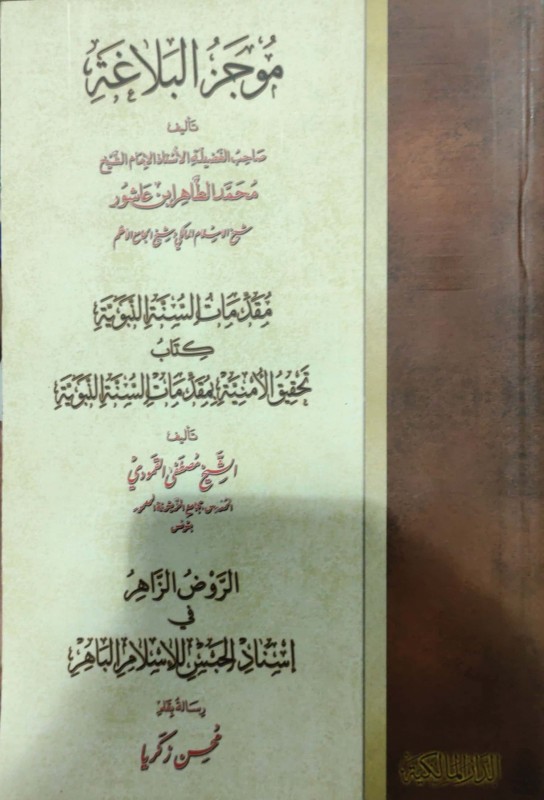 مُوجَزُ البَلَاغَةِ
تأليف
صاحب الفضيلة الأستاذ الإمام الشيخ
محمَّد الطَّاهر ابن عَاشُور
شيخ الإسلام المالكي وشيخ الجامع الأعظم
مُقَدِّمَاتُ السُّنَّةِ النَّبَوِيَّةِ
كِتَابُ
تَحقِيقُ الأُمْنِيَّةِ بِمُقَدِّمَاتِ السُّنَّةِ النَّبَوِيَّةِ
تأليف
الشَّيخ مُصطَفَى القمُودِي
بتونس
الرَّوضُ الزَّاهِرُ
في
إِسْنَادِ الحَبْسِ لِلإِسْلَامِ البَاهِرِ
رسالة بقلم
مُحسن زكريا
الدار المالكية